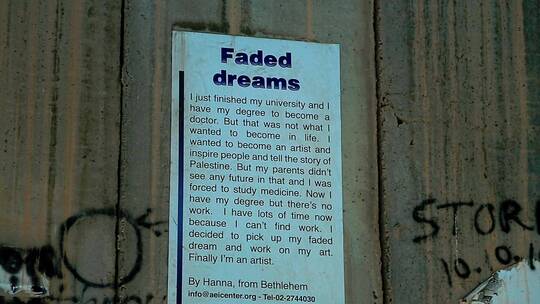 Faded
dreams
I just finished my university and I
have my degree to become a
doctor. But that was not what I
wanted to become in life. I
wanted to become an artist and
inspire people and tell the story of
Palestine. But my parents didn't
see any future in that and I was
forced to study medicine. Now I
have my degree but there's no
work. I have lots of time now
because I can't find work. I
decided to pick up my faded
dream and work on my art.
Finally I'm an artist.
By Hanna, from Bethlehem
info@aeicenter.org - Tel-02-2744030
STOR
10.10.